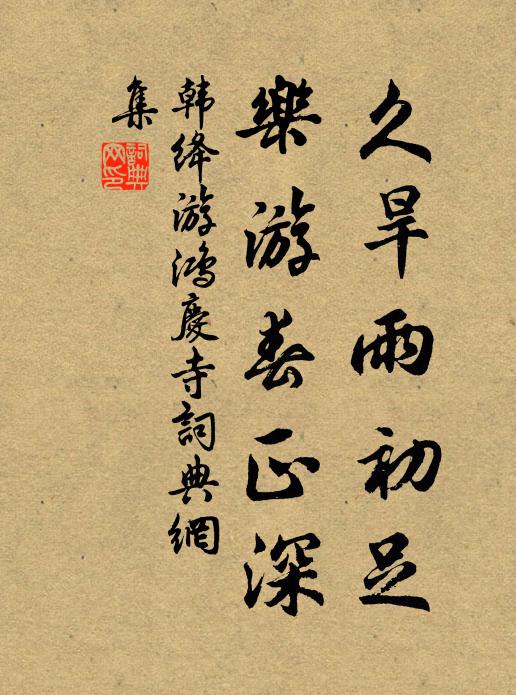 久旱雨初足
樂游春正深
韩绛游鴻慶寺詞典網
集
詞典
网印